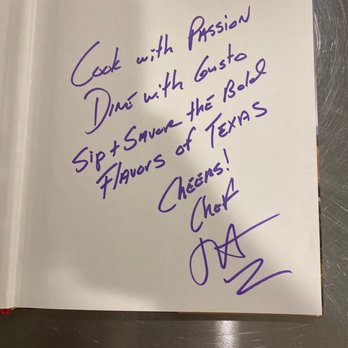 Cook with Passion
Dine with Gusto
Sip + Savor the Bold
Flavors of Texas
Cheers!
Chef